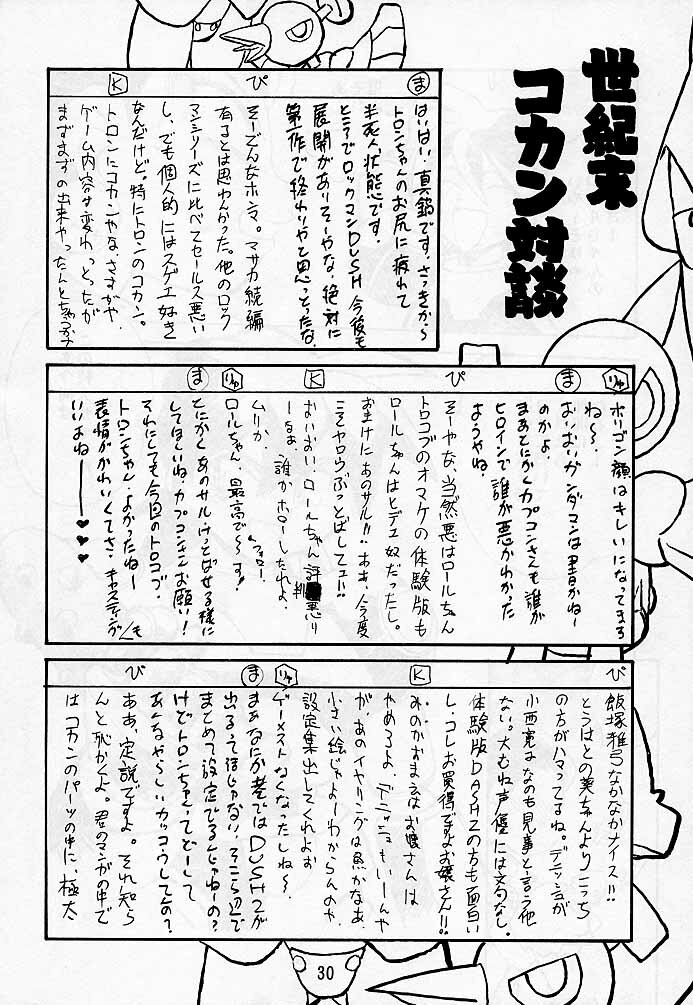 世紀末
コカン対談
ま
はいはい、真鍋です。さっきから
トロンちゃんのお尻に疲れて
半死人状態です。
ところでロックマンDUSH今後も
展開がありそーやな、絶対に
第一作で終わりやと思っとったな。
ぴ
そーどんなホンマ。マサカ続編
有るとは思わんかった。他のロック
マンシリーズに比べてセールス悪い
し、でも個人的にはスゲエ好き
なんだけど。特にトロンのコカン。
K
トロンにコカンやな、さすがや、
ゲーム内容も変わっとったが
まずまずの出来やったんとちゃうか?
りゅ
ポリゴン顔はキレいになってます
ね〜。
ま
おいおいガンダマンは里香かねー
のかよ。
まあとにかくカプコンさんも誰が
ヒロインで誰が悪かわかった
ようやね。
ぴ
そーやな、当然悪はロールちゃん
トロコブのオマケの体験版も
ロールちゃんはヒデェ奴だったし。
おまけにあのサル!!ああ、今度
こそヤロウぶっとばしてェ!!
K
おいおい、ロールちゃん評判悪り
ーなぁ、誰かホローしたれよ、
ムリか
りゅ
ロールちゃん、最高で〜す!!
フォロー
ま
とにかくあのサルけっとばせる様に
してほしいね、カプコンさんお願い!
それにしても今回のトロコブ、
トロンちゃん、よかったねー
表情がかわいくてさ、キャスティングも
いいよねー♥♥♥
ぴ
飯塚雅弓なかなかナイス!!
とぅはとの葵ちゃんよりこっち
の方がハマってるね。デニッシュが
小西寛はなのも見事と言う他
ない。大むね声優には文句なし。
体験版DASH2の方も面白い
し、コレお買得ですよお嬢さん!!
K
みのかおまえはお嬢さんは
やめろよ、デニッシュもいーんや
が、あのイヤリングは魚かなあ、
小さい絵じゃよーわからんのや、
設定集出してくれよお
りゅ
ゲーメストなくなったしね〜。
ま
まあなにか巷ではDUSH2が
出るって話じゃない、そこら辺で
まとめて設定でるんじゃねーの?
けどトロンちゃんってどーして
あんなやらしいカッコうしてんの?
ぴ
ああ、定説ですよ。それ知ら
んと恥かくよ。君のマンガの中で
はコカンのパーツの中に、極太
30